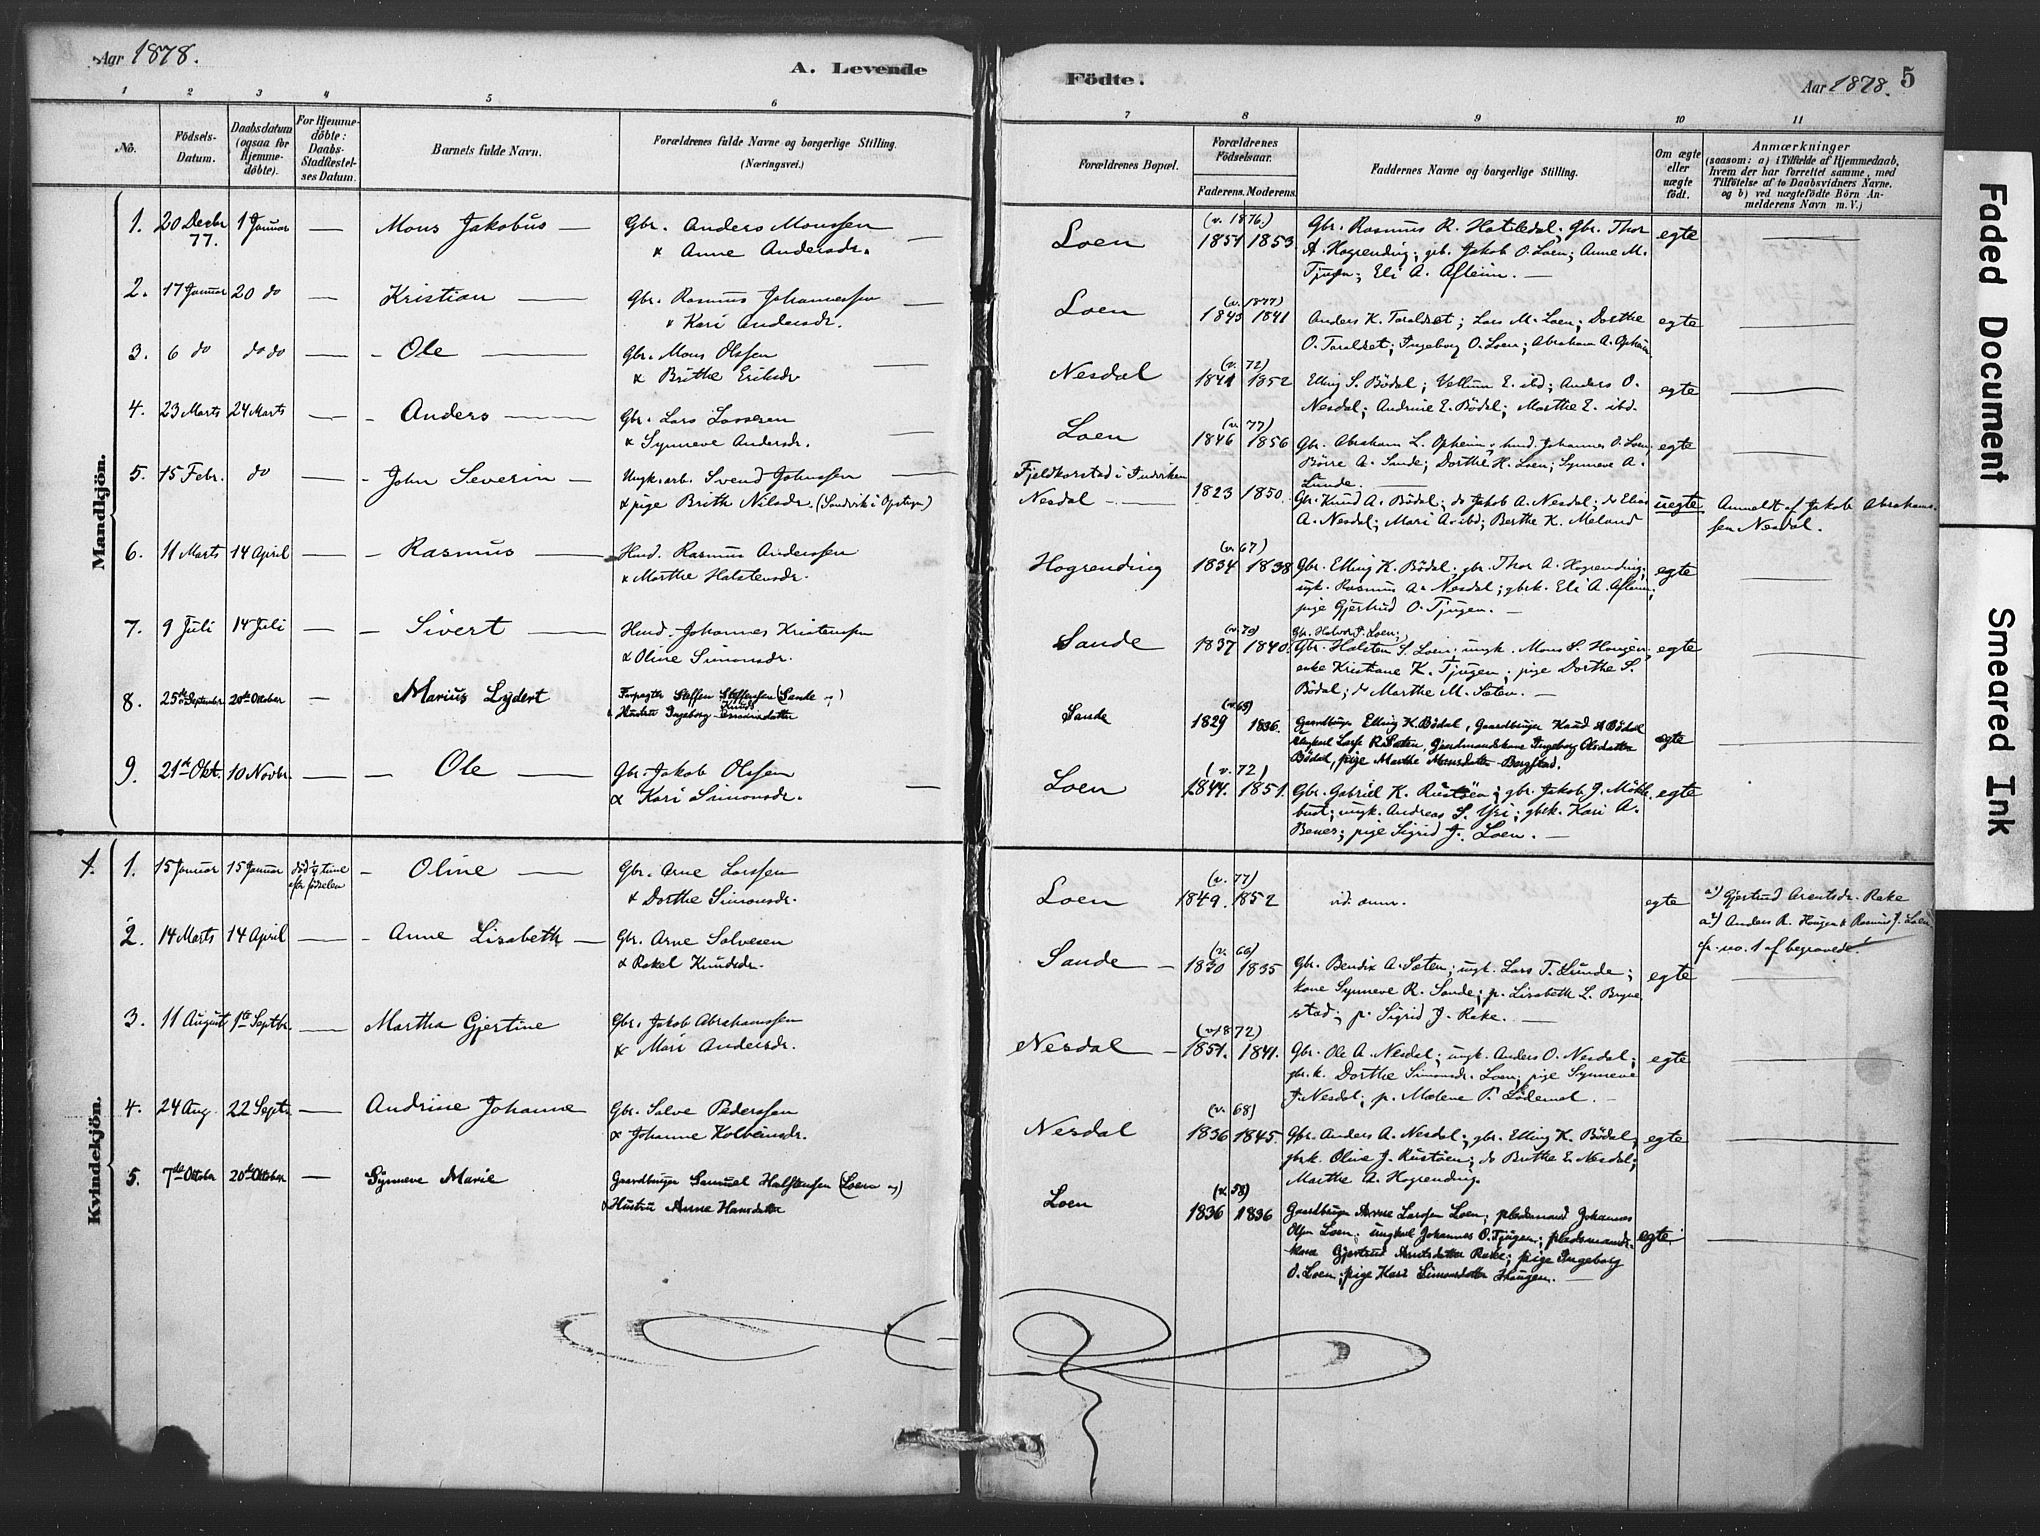 Aar 1878.
A. Levende Födte.
Aar 1878.
5
1 2 3 4 5 6 7 8 9 10 11
No.
Födsels-Datum.
Daabsdatum (ogsaa for Hjemme-döbte).
For Hjemme-döbte: Daabs-Stadfæstel-ses Datum.
Barnets fulde Navn.
Forældrenes fulde Navne og borgerlige Stilling.
(Næringsvei.)
Forældrenes Bopæl.
Forældrenes Födselsaar.
Faderens. Moderens.
Faddernes Navne og borgerlige Stilling.
Om ægte eller uægte födt.
Anmærkninger
(saasom: a) i Tilfælde af Hjemmedaab,
hvem der har forrettet samme, med
Tilföielse af to Daabsvidners Navne,
og b) ved uægtefödte Börn An-
melderens Navn m. V.)
Mandkjön.
1. 20 Decbr 77. 1 Januar — Mons Jakobus — Gbr. Anders Monssen
& Anne Andersdr.
Loen (v. 1876.) 1851 1853. Gbr. Rasmus R. Hatledal; gbr. Thor
A. Hogrending; gbr. Jakob O. Loen; Anne M.
Tjugen; Eli A. Afleim. — egte
2. 17 Januar 20 do — Kristian — Gbr. Rasmus Johannessen
& Kari Andersdr.
Loen (v. 1877) 1845 1841 Anders K. Taraldset; Lars M. Loen; Dorthe
O. Taraldset; Ingeborg O. Loen; Abraham A. Opheim egte
3. 6 do do do — Ole — Gbr. Mons Olssen
& Brithe Eriksdr
Nesdal (v. 72) 1841 1852 Elling S. Bödal; Vellum E. ibd; Anders O.
Nesdal; Andrine E. Bödal; Marthe E. ibd. egte
4. 23 Marts 24 Marts — Anders — Gbr. Lars Larssen
& Synneve Andersdr.
Loen (v. 77) 1846 1856 Gbr. Abraham L. Opheim; hmd. Johannes O. Loen;
Börre A. Sande; Dorthe H. Loen; Synneve A.
Lunde. — egte
5. 15 Febr. do — John Severin — Ungk. arb. Svend Johnssen
& pige Brith Nilsdr. (Sandvik i Opstryn)
Nesdal — 1823 1850. Gbr. Knud A. Bödal; do Jakob A. Nesdal; do Elias
A. Nesdal; Mari A. ibd; Berthe K. Meland uegte Anmeldt af Jakob Abrahams-
sen Nesdal.
6. 11 Marts 14 April — Rasmus — Hmd. Rasmus Anderssen
& Marthe Halstensdr.
Hogrending (v. 67) 1834 1838 Gbr. Elling K. Bödal; gbr. Thor A. Hogrending;
ungk. Rasmus A. Nesdal; gbrk. Eli A. Afleim;
pige Gjertrud O. Tjugen. — egte
7. 9 Juli 14 Juli — Sivert — Hmd. Johannes Kristenssen
& Oline Simonsdr.
Sande (v. 70) 1837 1840. Gbr. Halvor J. Loen;
Gbr. Halsten S. Loen; ungk. Mons S. Haugen;
enke Kristiane K. Tjugen; pige Dorthe S.
Bödal; do Marthe M. Sæten. — egte
8. 25de September 20de Oktober — Marius Lydert Forpagter Steffen Steffensen (Sande)
& Hustru Ingeborg Knudsdatter
Sande (v. 65) 1829 1836. Gaardbruger Elling K. Bödal, Gaardbruger Knud A Bödal
Ungkarl Lars R. Sæten, Gaardmandskone Ingeborg Olsdatter
Bödal, pige Marthe Monsdatter Bergstad. egte
9. 21de Okt. 10 Novbr. — Ole — Gbr. Jakob Olssen
& Kari Simonsdr.
Loen (v. 72) 1844. 1851. Gbr. Gabriel K. Rustöen; gbr. Jakob J. Mökle-
bust; ungk. Andreas S. Yri; gbrk. Kari A.
Benes; pige Sigrid J. Loen. — egte
Kvindekjön.
1. 1. 15 Januar 15 Januar död ½ time efter födselen — Oline — Gbr. Arne Larssen
& Dorthe Simonsdr.
Loen (v. 77) 1849. 1852 vid. anm. egte a1) Gjertrud Arentsdr. Rake
a2) Anders R. Haugen & Rasmus J. Loen
cfr. no. 1 af begravede!
2. 14 Marts 14 April — Anne Lisabeth — Gbr. Arne Salvesen
& Rakel Knudsdr.
Sande — (v. 60) 1830 1835 Gbr. Bendix A. Sæten; ungk. Lars T. Lunde;
kone Synneve R. Sande; p. Lisabeth L. Bryne-
stad; p. Sigrid J. Rake. — egte
3. 11 August 1ste Septbr. — Martha Gjertine Gbr. Jakob Abrahamssen
& Mari Andersdr.
Nesdal — (v. 1872) 1851. 1841. Gbr. Ole A. Nesdal; ungk. Anders O. Nesdal;
gbr.k. Dorthe Simonsdr. Loen; pige Synneve
J. Nesdal; p. Malene P. Lödemel. — egte
4. 24 Aug. 22 Septr. — Andrine Johanne Gbr. Salve Pederssen
& Johanne Kolbeinsdr.
Nesdal (v. 68) 1836 1845. Gbr. Anders A. Nesdal; gbr. Elling K. Bödal;
gbrk. Oline J. Rustöen; do Brithe E. Nesdal;
Marthe A. Hogrending. egte
5. 7de Oktober 20de Oktober — Synneve Marie Gaardbruger Samuel Halstensen (Loen)
& Hustru Anne Hansdatter
Loen (v. 58) 1836 1836 Gaardbruger Arne Larssen Loen; pladsmand Johannes
Olsen Loen; ungkarl Johannes O. Tjugen; pladsmands-
kone Gjertrud Arntsdatter Rake; pige Ingeborg
O. Loen; pige Kari Simonsdatter Haugen. — egte
Faded Document
Smeared Ink